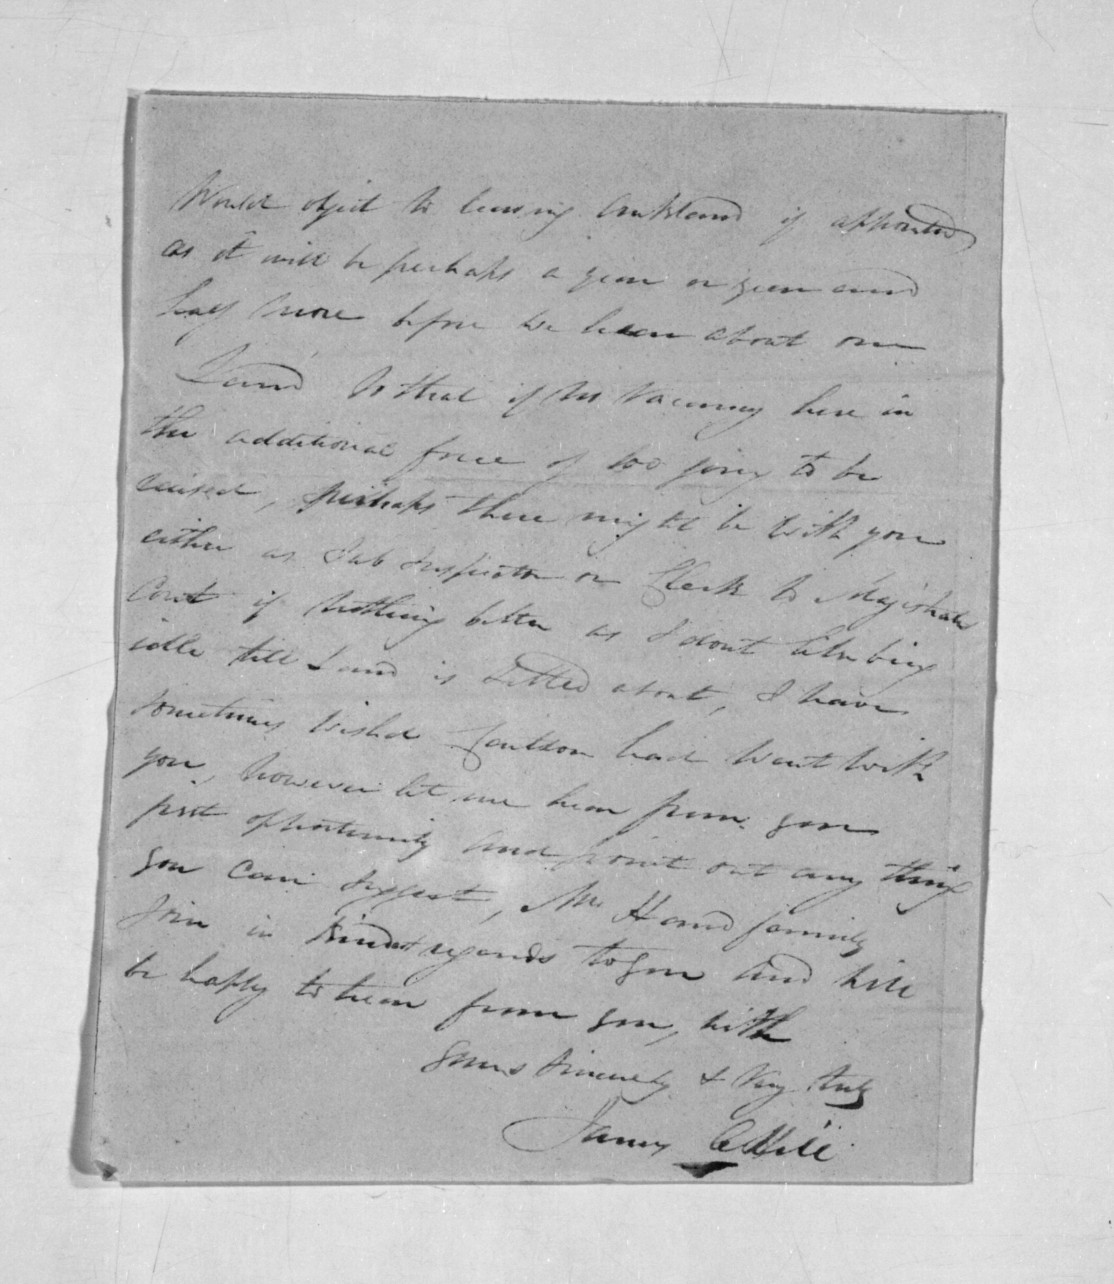 Would object to leaving Auckland if appointed
as it will be perhaps a year or year and
half more before we hear about our
Land so that if no vacancy here in
the additional force of 100 going to be
raised, perhaps there might be with you
either as Sub Inspector or Clerk to Magistrate
Court if nothing better as I dont like being
idle till Land is settled about, I have
sometimes wished had went with
you, however let me hear from you
first opportunity and point out any thing
you can suggest, Mrs H and family
join in kindest regards to you and will
be happy to hear from you, with
yours sincerely & very truly
James Hill